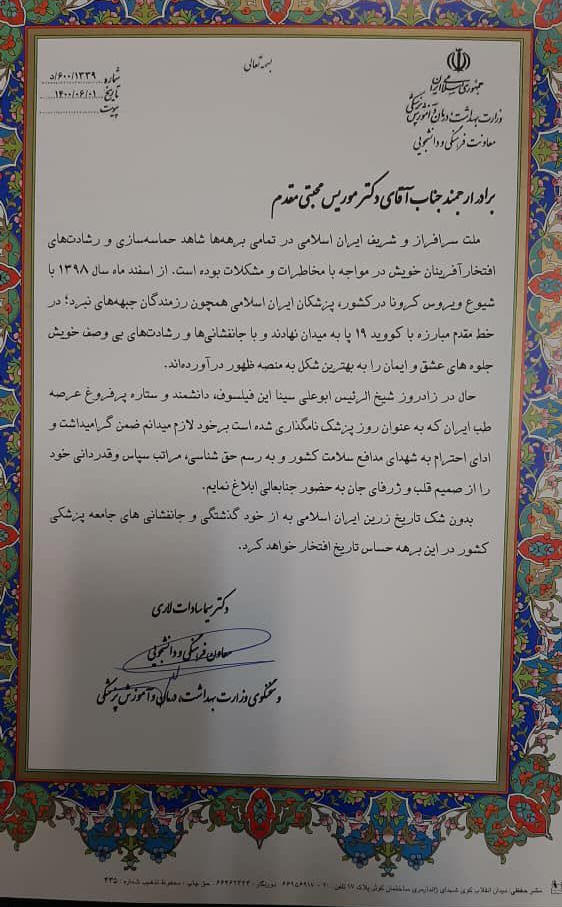 بسمه تعالی
جمهوری اسلامی ایران
وزارت بهداشت، درمان و آموزش پزشکی
معاونت فرهنگی و دانشجویی
شماره ۵/۶۰۰/۱۳۳۹
تاریخ ۱۴۰۰/۰۶/۰۱
پیوست
برادر ارجمند جناب آقای دکتر موریس محبتی مقدم
ملت سرافراز و شریف ایران اسلامی در تمامی برهه‌ها شاهد حماسه‌سازی و رشادت‌های
افتخارآفرینان خویش در مواجه با مخاطرات و مشکلات بوده است. از اسفند ماه سال ۱۳۹۸ با
شیوع ویروس کرونا در کشور، پزشکان ایران اسلامی همچون رزمندگان جبهه‌های نبرد؛ در
خط مقدم مبارزه با کووید ۱۹ پا به میدان نهادند و با جانفشانی‌ها و رشادت‌های بی وصف خویش
جلوه های عشق و ایمان را به بهترین شکل به منصه ظهور درآورده‌اند.
حال در زادروز شیخ الرئیس ابوعلی سینا این فیلسوف، دانشمند و ستاره پرفروغ عرصه
طب ایران که به عنوان روز پزشک نامگذاری شده است برخود لازم میدانم ضمن گرامیداشت و
ادای احترام به شهدای مدافع سلامت کشور و به رسم حق شناسی، مراتب سپاس وقدردانی خود
را از صمیم قلب و ژرفای جان به حضور جنابعالی ابلاغ نمایم.
بدون شک تاریخ زرین ایران اسلامی به از خود گذشتگی و جانفشانی های جامعه پزشکی
کشور در این برهه حساس تاریخ افتخار خواهد کرد.
دکتر سیما سادات لاری
معاون فرهنگی و دانشجویی
و سخنگوی وزارت بهداشت، درمان و آموزش پزشکی
میدان انقلاب کوی شهدای ژاندارمری ساختمان کوثر پلاک ۱۷ تلفن ۶۶۱۵۶۹۱۷-۲۰ دورنگار: ۶۶۹۶۲۲۲۳ حق چاپ محفوظ تذهیب شماره: ۴۳۵